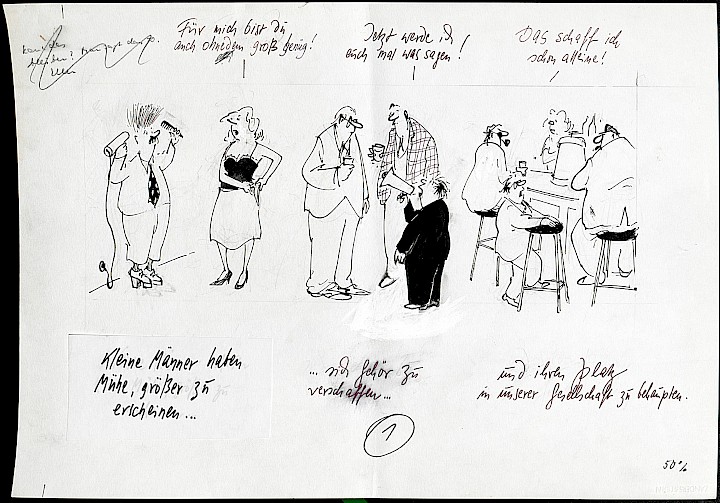 Für mich bist du
auch ohnedem groß genug!
Jetzt werde ich
euch mal was sagen!
Das schaff ich
schon alleine!
Kleine Männer haben
Mühe, größer zu
erscheinen...
... sich Gehör zu
verschaffen...
und ihren Platz
in unserer Gesellschaft zu behaupten.
1
50%